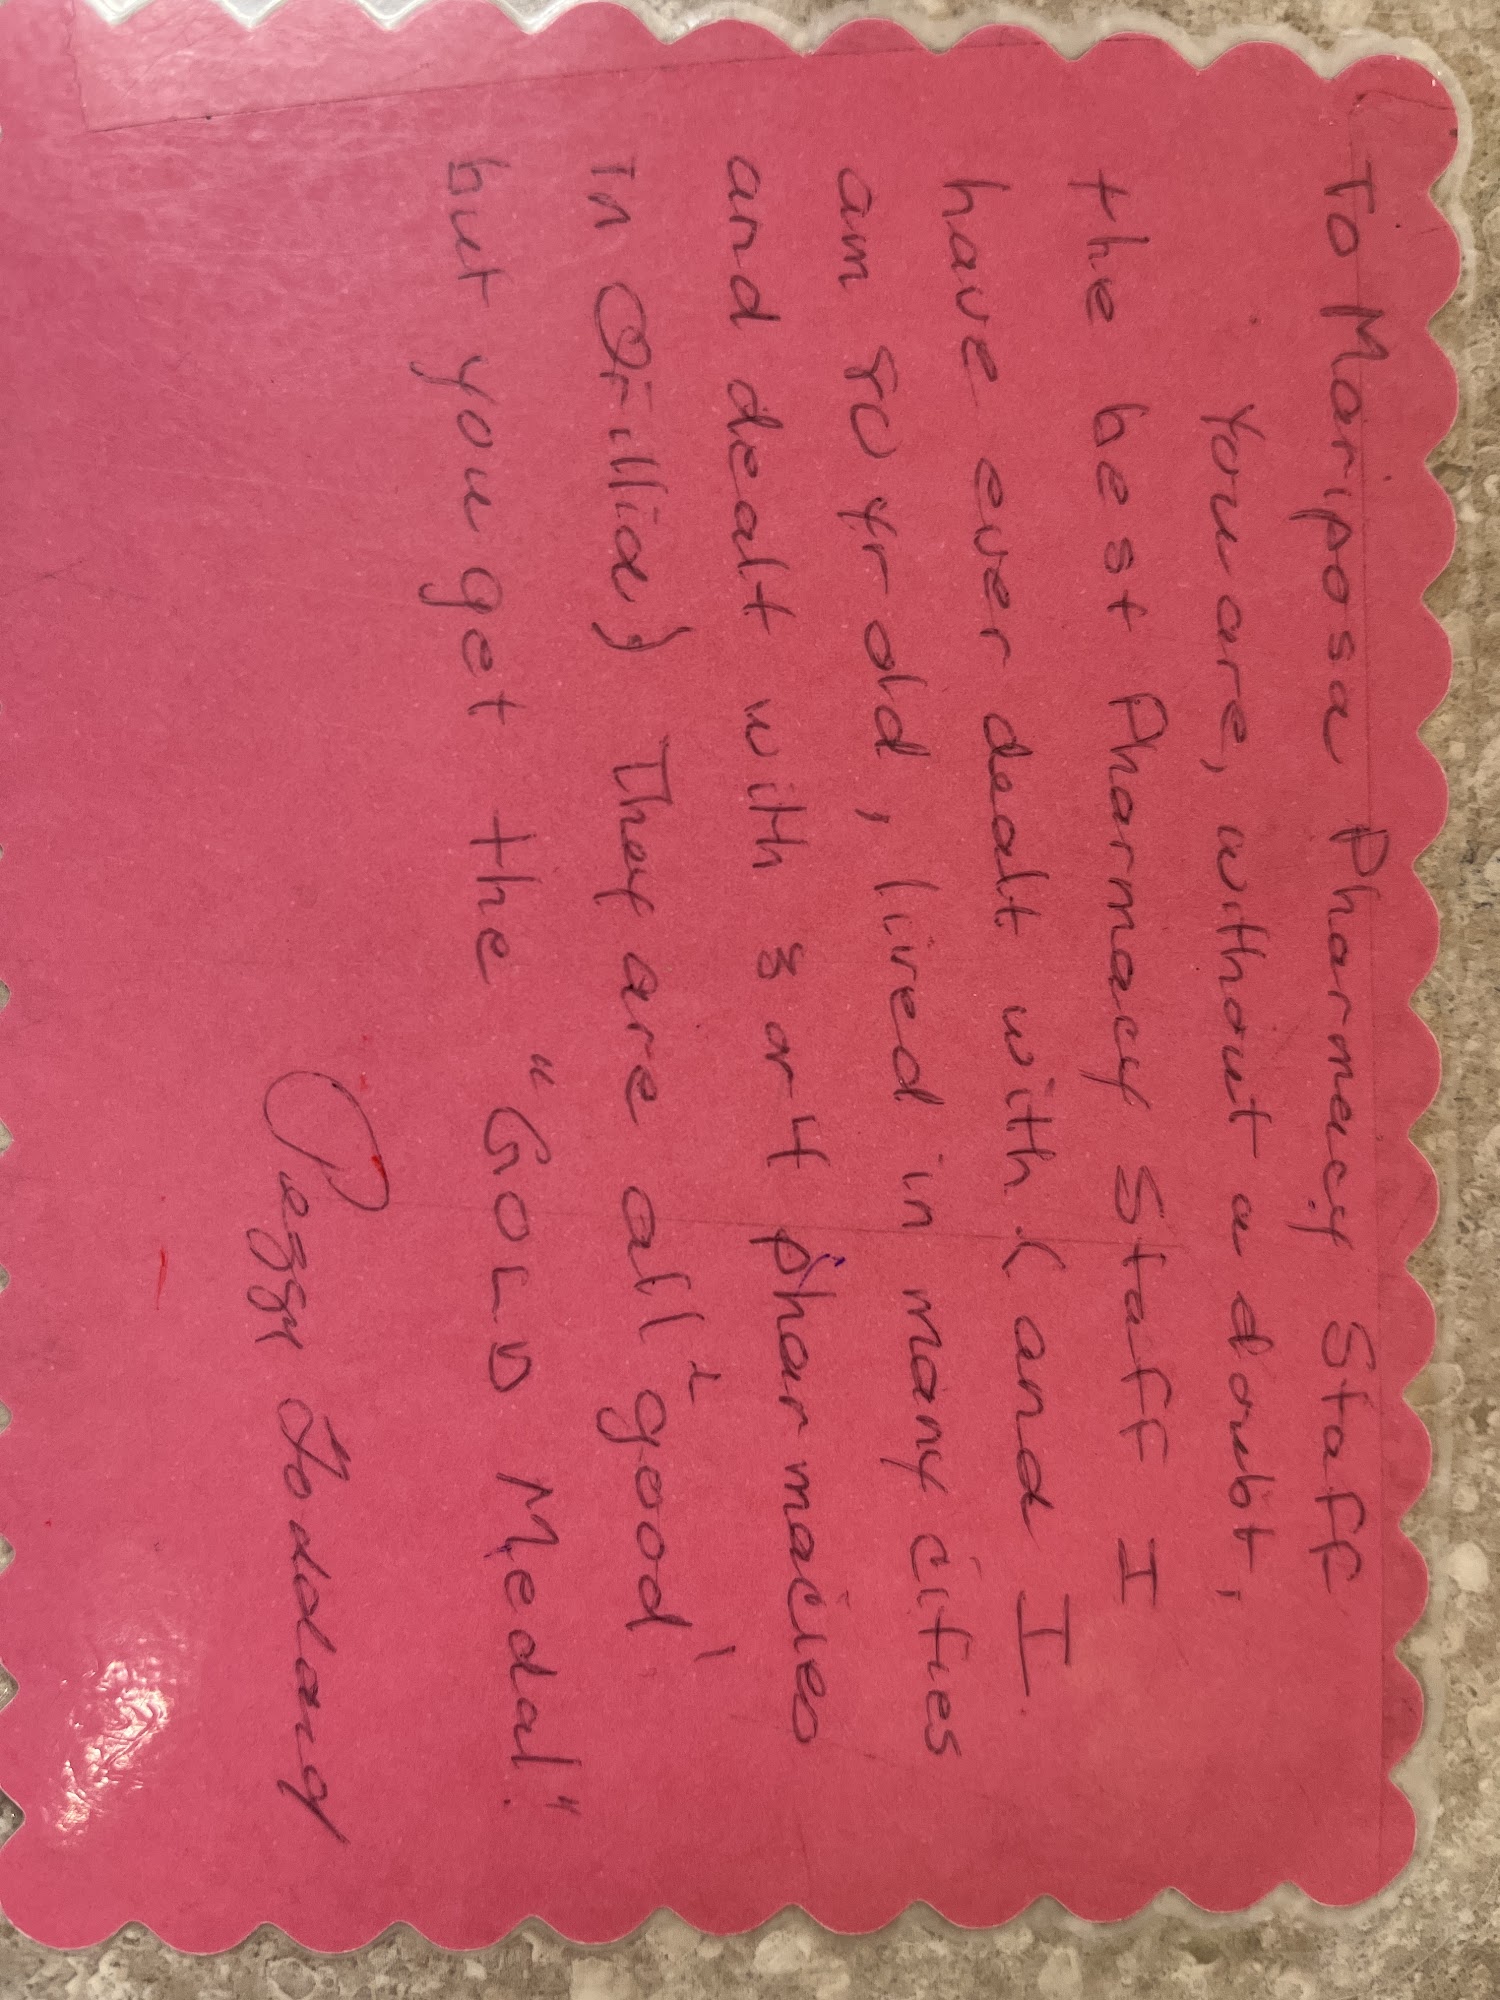 To Mariposa Pharmacy Staff
You are, without a doubt,
the best Pharmacy Staff I
have ever dealt with (and I
am 80 yr old, lived in many cities
and dealt with 3 or 4 pharmacies
in Orillia) They are all "good"
but you get the "GOLD Medal"
Peggy